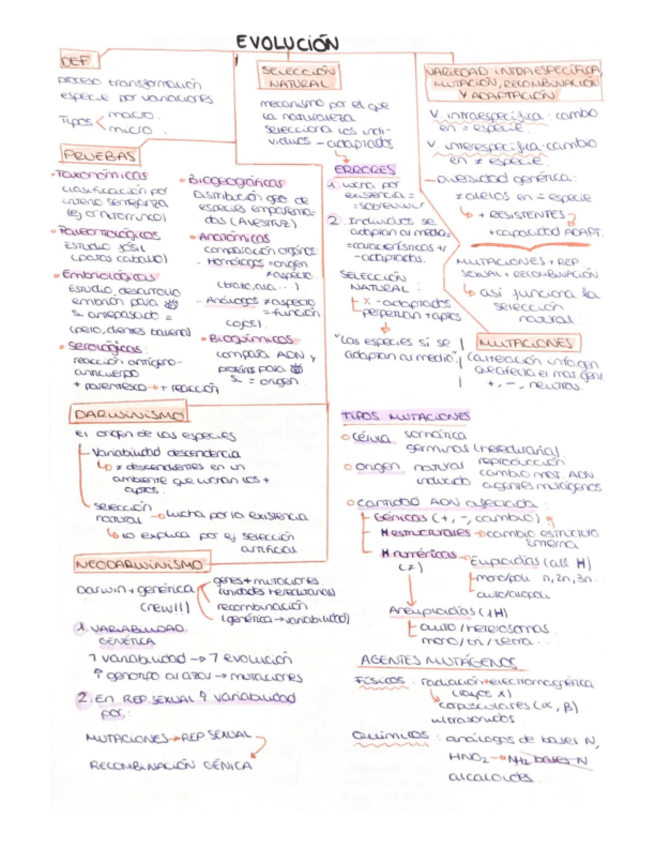 EVOLUCIÓN
DEF
proceso transformación
especie por variaciones
Tipos macro.
micro.
PRUEBAS
• Taxonómicas
clasificación por
criterio semejanza
(ej ornitorrinco)
• Paleontológicas
estudio fósil
(patas caballo)
• Embriológicas
estudio desarrollo
embrión para
antepasado =
(pelo, dientes ballena)
• Serológicas:
reacción antígeno-
anticuerpo
+ parentesco → + reacción
• Biogeográficas
Distribución geo. de
especies emparenta-
das (Avestruz).
• Anatómicas
comparación órganos.
- Homólogos = origen
≠ aspecto.
(brazo, ala...)
- Análogos ≠ aspecto
= función
(ojos).
• Bioquímicos
compara ADN y
proteins para
= origen.
SELECCIÓN
NATURAL
mecanismo por el que
la naturaleza
selecciona los indi-
viduos - adaptados
ERRORES
1. Lucha por
existencia =
2. Individuos se
adaptan al medio =
= características +/
- adaptados.
SELECCIÓN
NATURAL:
x - adaptados
perpetúan + aptos
"Las especies sí se
adaptan al medio"
VARIEDAD INTRAESPECÍFICA,
MUTACIÓN, RECOMBINACIÓN
Y ADAPTACIÓN
V. intraespecífica: cambio
en = especie.
V. interespecífica: cambio
en ≠ especie
- Diversidad genética:
≠ alelos en = especie
↳ + RESISTENTES
+ capacidad ADAPT.
MUTACIONES + REP
SEXUAL + RECOMBINACIÓN
↳ así funciona la
selección
natural.
MUTACIONES
+, -, neutras.
DARWINISMO
El origen de las especies
Variabilidad descendencia
↳ ≠ descendientes en un
ambiente que luchan los +
aptos.
selección
natural → lucha por la existencia
↳ lo explica por ej selección
artificial
NEODARWINISMO
Darwin + genética
genes + mutaciones
(unidades hereditarias)
recombinación
(genética → variabilidad)
1. VARIABILIDAD
GENÉTICA
↑ variabilidad → ↑ evolución
↑ genotipo al azar → mutaciones
2. En REP SEXUAL ↑ variabilidad
por:
MUTACIONES → REP SEXUAL
RECOMBINACIÓN GÉNICA
TIPOS MUTACIONES
o Célula somática
germinal (hereditaria).
o Origen natural reproducción
inducido cambio mat. ADN
agentes mutágenos
o Cantidad ADN afectada:
Génicas (+, -, cambio)
H estructurales → cambio estructura
interna
H numéricas → Euploidías (all H)
(≠)
mono/poli n, 2n, 3n..
auto/alopoli
Aneuploidías (1H)
auto/heterosomas
mono/tri/tetra...
AGENTES MUTÁGENOS
Físicos: radiación → electromagnética
(rayos x)
corpusculares (α, β)
ultrasonidos.
Químicos: análogos de bases N,
HNO2 → NH2 bases N
alcaloides...